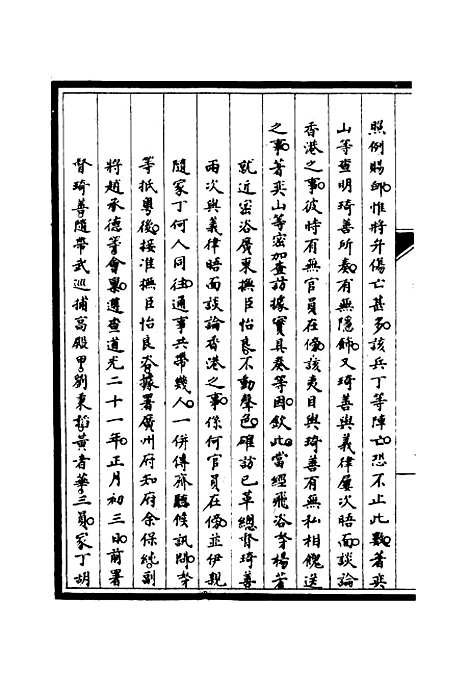 照例賜卹惟將弁傷亡甚多該兵丁等陣亡恐不止此數著奕
山等查明琦善所奏有無隱飾又琦善與義律屢次晤面談論
香港之事彼時有無官員在傍該夷目與琦善有無私相餽送
之事著奕山等密加查訪據實具奏等因欽此當經飛咨參楊芳
就近密咨廣東撫臣怡良不動聲色確訪已革總督琦善
兩次與義律晤面談論香港之事係何官員在傍並伊親
隨家丁何人同往通事共帶幾人一併傳齊聽候訊問等
等抵粵後接准撫臣怡良咨據署廣州府知府余保純副
將趙承德等會稟遵查道光二十一年正月初三日前署
督琦善隨帶武巡捕寫殿甲劉東韜黃者華三員家丁胡